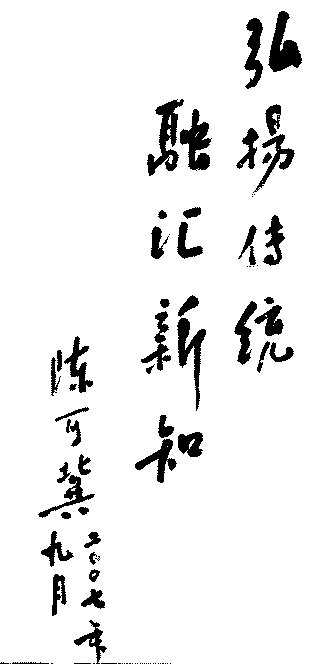 弘揚传统
融汇新知
陈可冀
二〇〇七年
九月